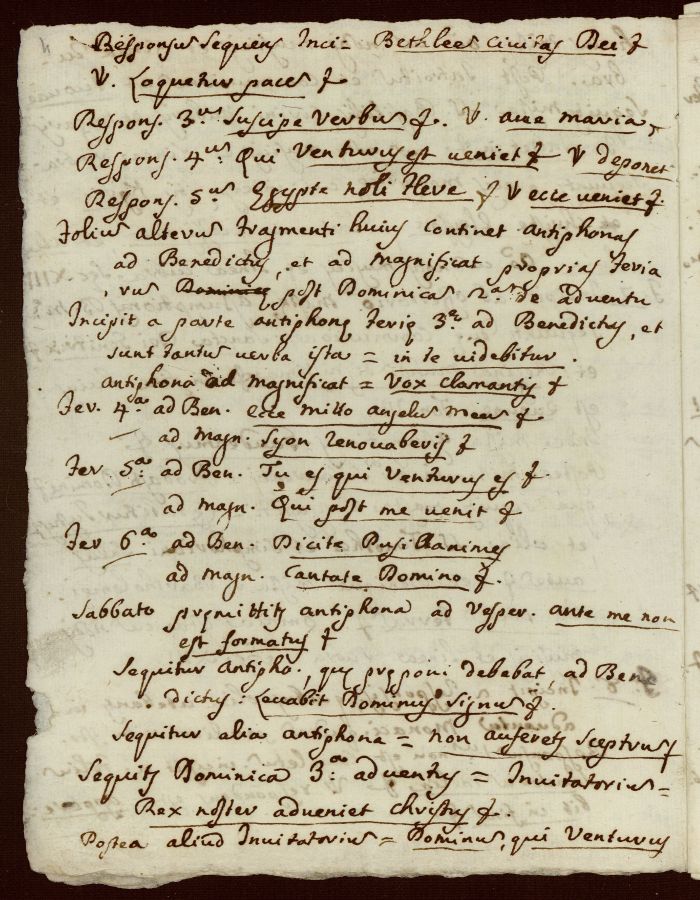 Responsus sequens Inci= Bethlee Civitas Dei &
V. Loquetur pace &
Respons. 3.us Suscipe Verbu &. V. ave maria,
Respons. 4.us Qui Venturus est veniet & V deponet
Respons. 5.us Egypte noli flere & V ecce veniet &.
Folius alterus fragmenti huius continet antiphonas
ad Benedictus, et ad magnificat proprias feria
rus Dominice post Dominica 2.am de adventu
Incipit a parte antiphone ferie 3.e ad Benedictus, et
sunt tantus verba ista = in te videbitur.
antiphona ad magnificat = Vox clamantis &
Fer. 4.a ad Ben. ecce mitto angelus meus &
ad magn. Syon renovaberis &
Fer. 5.a ad Ben. Tu es qui Venturus es &.
ad magn. Qui post me venit &
Fer 6.a ad Ben. Dicite Pusillanimes
ad magn. Cantate Domino &.
Sabbato premittits antiphona ad Vesper. ante me non
est formatus &
Sequitur Antipho., que preponi debebat, ad Bene
dictus: Levabit Dominus signus &.
Sequitur alia antiphona = non auferets sceptrus
Sequits Dominica 3.a adventus = Invitatorius =
Rex noster adveniet Christus &.
Postea aliud Invitatorius = Dominus, qui Venturus